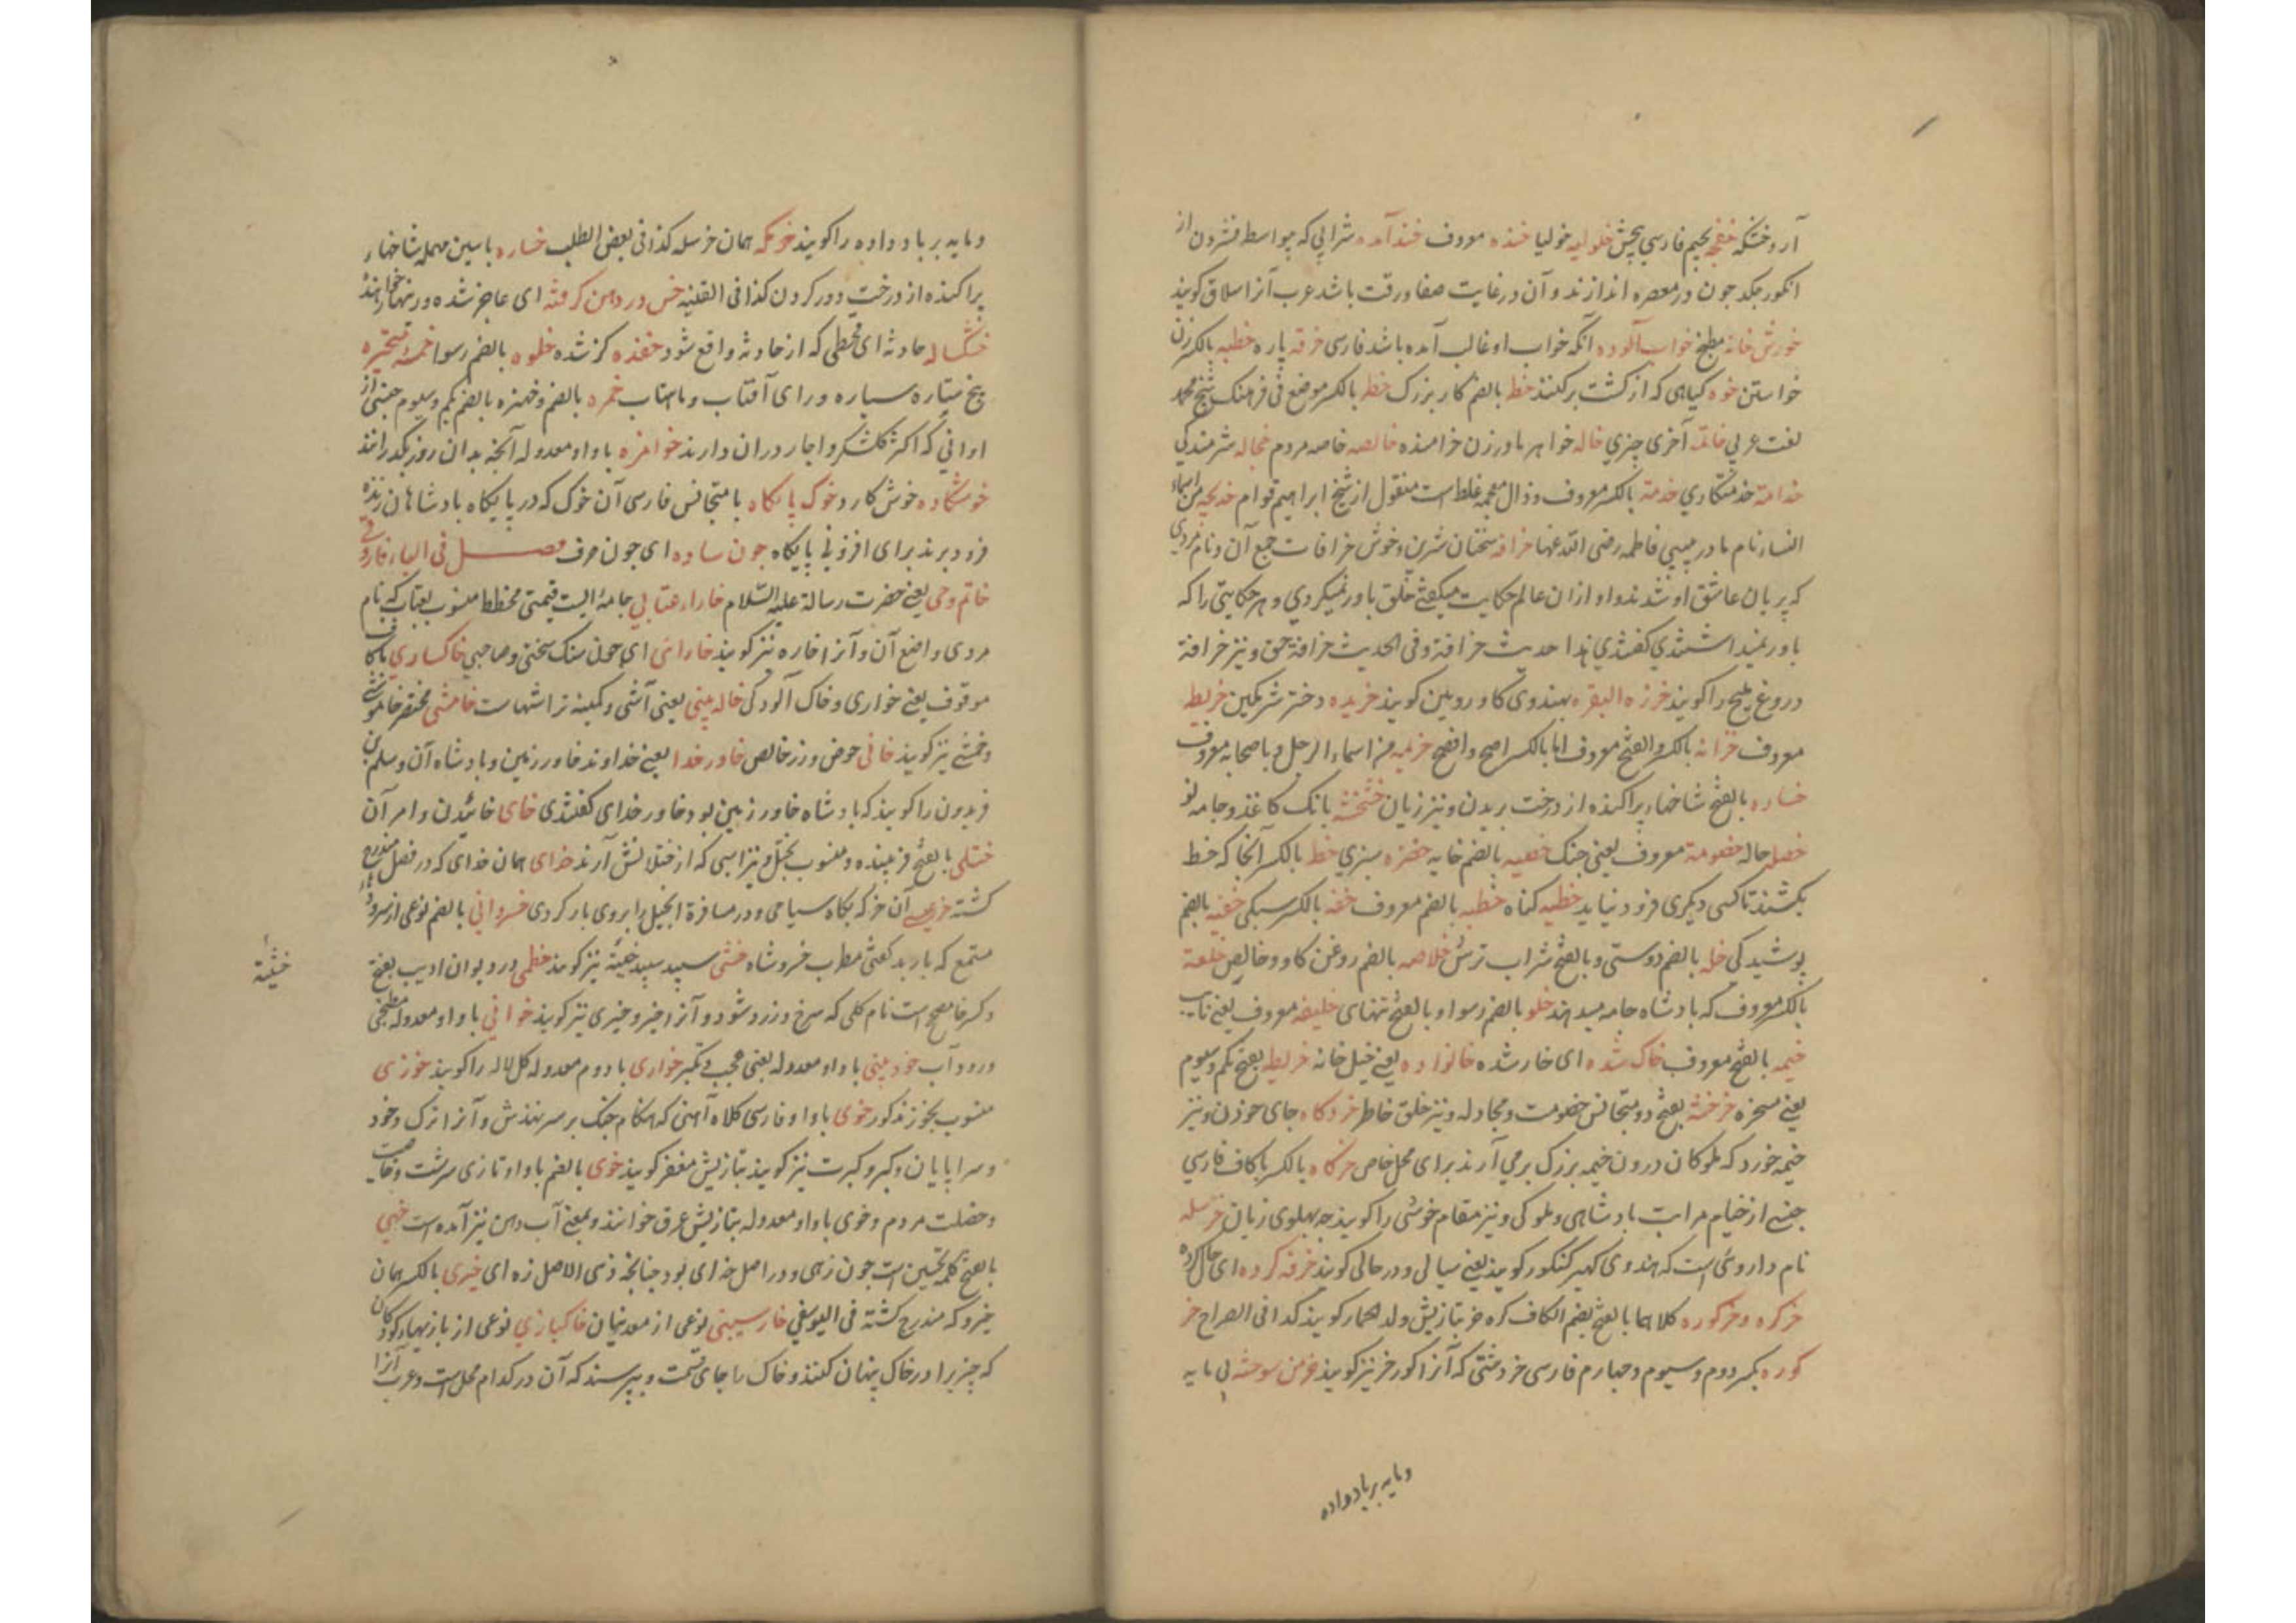 آرد خشکه خفچه بجیم فارسی بخش خلولیه خولیا خنده معروف خندآمده شرابی که بیواسطه فشردن از
انکور چکد جون در معصره اندازند و آن در غایت صفا و رقت باشد عرب آنرا سلاق کویند
خورش خانه مطبخ خواب آلوده آنکه خواب او غالب آمده باشد فارسی خرقه پاره خطبه بالکسر زن
خواستن خوه کیاهی که از کشت برکنند خط بالضم کار بزرک خط بالکسر موضع فی فرهنک شیخ محمد
لغت عربی خاتمه آخری چیزی خاله خواهر مادر زن خرامنده خالصه خاصه مردم خجاله شرمندکی
خدامة خدمتکاری خدمة بالکسر معروف و ذال معجمه غلط است منقول از شیخ ابراهیم قوام خدیجه من اسماء
النساء نام مادر بیبی فاطمه رضی الله عنها خرافه سخنان شیرین و خوش خرافات جمع آن و نام مردی
که پریان عاشق او شدند و او از ان عالم حکایت میکفتی خلق باور نمیکردی و هر حکایتی را که
باور نمیداشتندی کفتندی هذا حدیث خرافة و فی الحدیث خرافة حق و نیز خرافة
دروغ ملیح را کویند خرزه البقره بهندوی کاو روبین کویند خریده دختر شرمکین خریطه
معروف خزانه بالکسر و الفتح معروف اما بالکسر اصح و افصح خزیمه من اسماء الرجل و با صحابه معروف
خساره بالفتح شاخهاء پراکنده از درخت بریدن و نیز زیان خشخشه بانک کاغذ و جامه نو
خصله حاله خصومة معروف یعنی جنک خصیه بالضم خایه خضره سبزی خط بالکسر آنجا که خط
بکشند تا کسی دیکری فرود نیاید خطیه کناه خطبه بالضم معروف خفه بالکسر سبکی خفیه بالضم
پوشیدکی خله بالضم دوستی و بالفتح شراب ترش خلاصه بالضم روغن کاو و خالص خلعة
بالکسر معروف که بادشاه جامه میدهند خلو بالضم رسوا و بالفتح تنهای خلیفه معروف یعنی نایب
خیمه بالفتح معروف خاک شده ای خار شده خانواده یعنی خیل خانه خریطه بفتح یکم و سیوم
یعنی مسخره خرخشه بفتح دو متجانس خصومت و مجادله و نیز خلق خاطر خردکاه جای خوردن و نیز
خیمه خورد که ملوکان درون خیمه بزرک برمی آرند برای محل خاص خرکاه بالکسر با کاف فارسی
جنسی از خیام مراتب بادشاهی و ملوکی و نیز مقام خوشی را کویند جه بهلوی زبان خرسله
نام داروئی است که هندوی کهیر کنکور کویند یعنی سیالی و در حالی کویند خرفه کرده ای حال کرده
خرکره و خرکوره کلاهما بالفتح بضم الکاف کره خر بتازیش ولد الحمار کویند کذا فی الصراح خر
کوره بکسر دوم و سیوم و جهارم فارسی خر دشتی که آنرا کورخر نیز کویند خرمن سوخته بی مایه
ومایه برباد داده
ومایه برباد داده را کویند خرمکه همان خرسله کذا فی بعض الطلب خساره با سین مهمله شاخهاء
پراکنده از درخت دور کردن کذا فی القنیه خس در دهن کرفته ای عاجز شده و زینهار خواهنده
خشکساله حادثه ای قحطی که از حادثه واقع شود خفده کزشده خلوه بالضم رسوا خمسه متحیره
پنج ستاره سیاره ورای آفتاب و ماهتاب خمره بالضم و خنبره بالضم یکم و سیوم جنسی از
اوانی که اکثر کلشکر و اجار دران دارند خوامزه با واو معدوله آنجه بدان روز بکذرانند
خوشکاده خوش کارد خوک پایکاه با متجانس فارسی آن خوک که در پایکاه بادشاهان زنده
فرود برند برای افزونی پایکاه جون ساده ای جون حرف فصل فی الیاء فارسی
خاتم وحی یعنی حضرت رسالة علیه السلام خاراء عتابی جامهٔ ایست قیمتی مخطط منسوب بعتاب که نام
مردی واضع آن و آنرا خاره نیز کویند خارائی ای جون سنک سختی و صاحبی خاکساری با کاف
موقوف یعنی خواری و خاک آلودکی خاله بینی یعنی آشی و کمینه تراشهاست خامشی مختصر خاموشی
و خمشی نیز کویند خانی حوض و زر خالص خاور خدا یعنی خداوند خاور زمین و بادشاه آن و سلم بن
فریدون را کویند که بادشاه خاور زمین بود خاور خدای کفتندی خای خائیدن و امر آن
ختلی بالفتح فریبنده و منسوب بختل و نیز اسپی که از ختلانش آرند خدای همان خدای که در فصل الف مندرج
کشته خرعیسی آن خر که بکاه سیاحی و در مسافرة انجیل را بروی بار کردی خسروانی بالضم نوعی از سرود
مستمع که باربد کفتی مطرب خسرو شاه خشی سپید سپید خشیة نیز کویند خطمی در دیوان ادیب بفتح
و کسر خا مصحح است نام کلی که سرخ و زرد شود و آنرا خیرو خیری نیز کویند خوانی با واو معدوله مطبخی
و رود آب خود بینی با واو معدوله یعنی عجب و تکبر خواری با دوم معدوله کل لاله را کویند خوزی
منسوب بخوز مذکور خوی با واو فارسی کلاه آهنی که هنکام جنک بر سر نهندش و آنرا ترک و خود
و سراپایان و کبر و کبرت نیز کویند بتازیش مغفر کویند خوی بالضم با واو تازی سرشت و خاصیت
و خصلت مردم و خوی با واو معدوله بتازیش عرق خوانند و بمعنی آب دهن نیز آمده است خهی
بالفتح کلمه تحسین است جون زهی و در اصل خه ای بود جنانجه زهی الاصل زه ای خیری بالکسر همان
خیرو که مندرج کشته فی الیوسفی خار سیینی نوعی از معدنیان خاکبازی نوعی از بازیهاء کودکان
که جیز را در خاک پنهان کنند و خاک را جای قسمت و بپرسند که آن در کدام محل است و عرب آنرا
خشیة